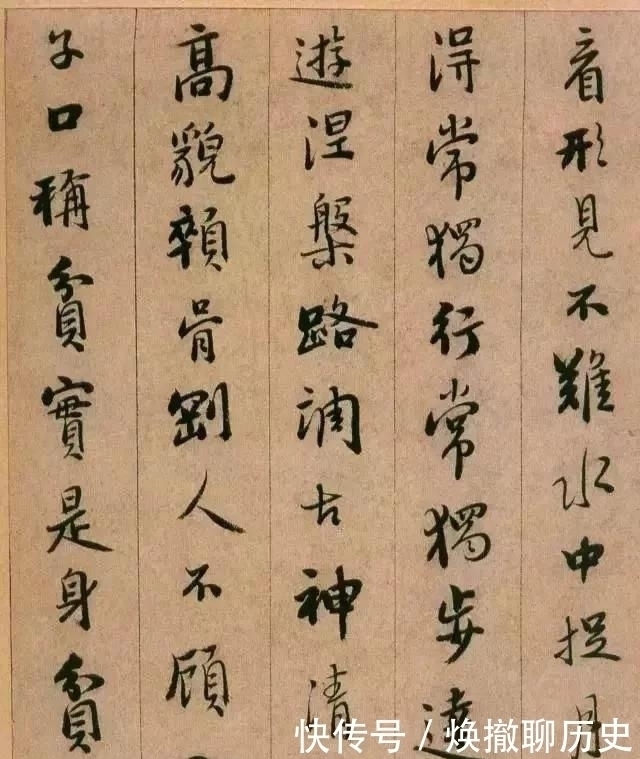 看形見不難水中捉月
淂常獨行常獨步達
遊涅槃路調古神清
高貌顇骨剛人不顧
子口稱貧實是身貧
快传号/焕撤聊历史